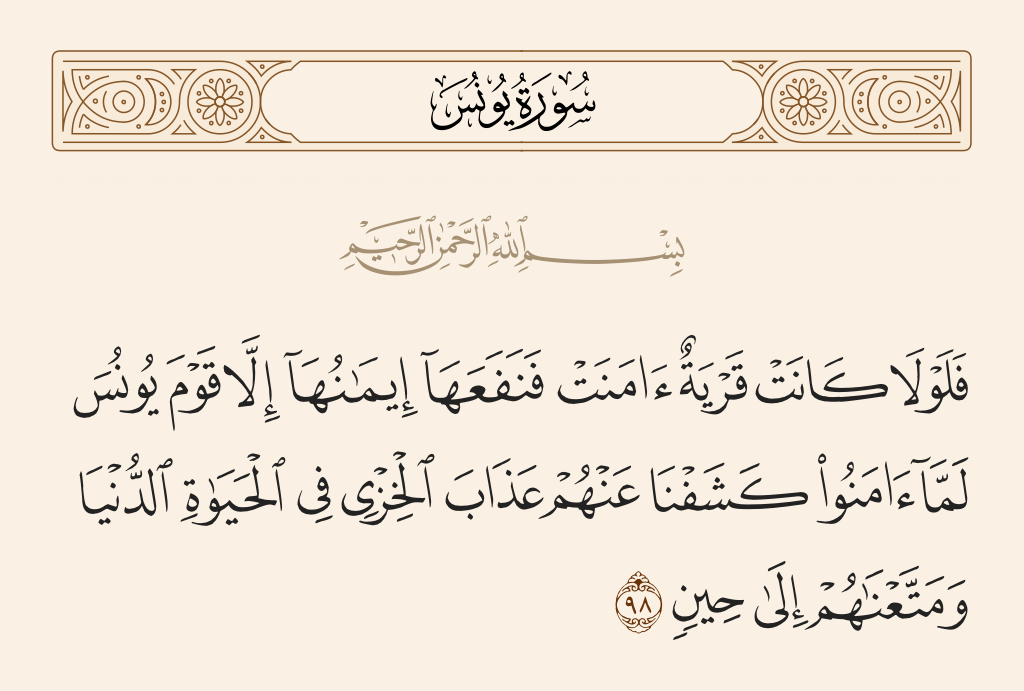 سُورَةُ يُونُسَ
بِسْمِ ٱللَّهِ ٱلرَّحْمَٰنِ ٱلرَّحِيمِ
فَلَوْلَا كَانَتْ قَرْيَةٌ ءَامَنَتْ فَنَفَعَهَآ إِيمَٰنُهَآ إِلَّا قَوْمَ يُونُسَ
لَمَّآ ءَامَنُوا۟ كَشَفْنَا عَنْهُمْ عَذَابَ ٱلْخِزْىِ فِى ٱلْحَيَوٰةِ ٱلدُّنْيَا
وَمَتَّعْنَٰهُمْ إِلَىٰ حِينٍ ٩٨